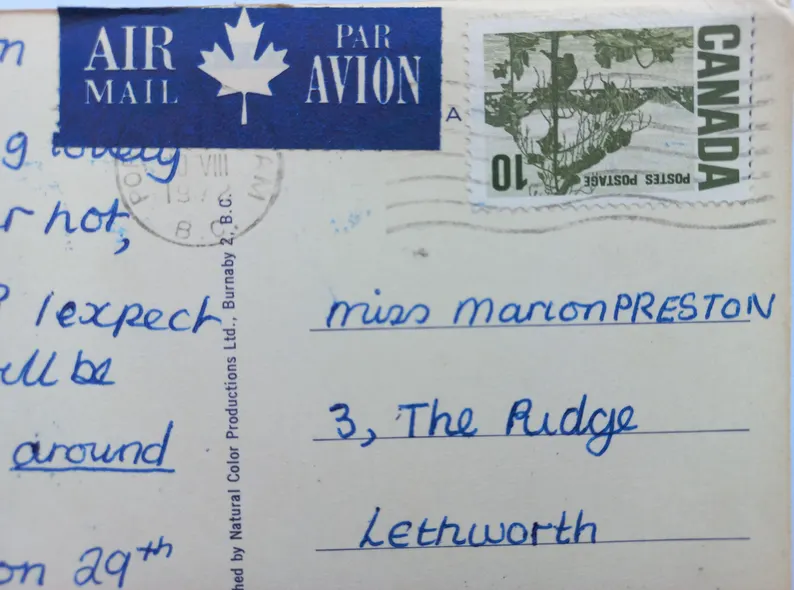 AIR MAIL
PAR AVION
CANADA
POSTES POSTAGE
10
A
VIII
B.C.
n
g lovely
r hot,
I expect
ll be
around
on 29th
hed by Natural Color Productions Ltd., Burnaby 2, B.C.
Miss Marion PRESTON
3, The Ridge
Lethworth